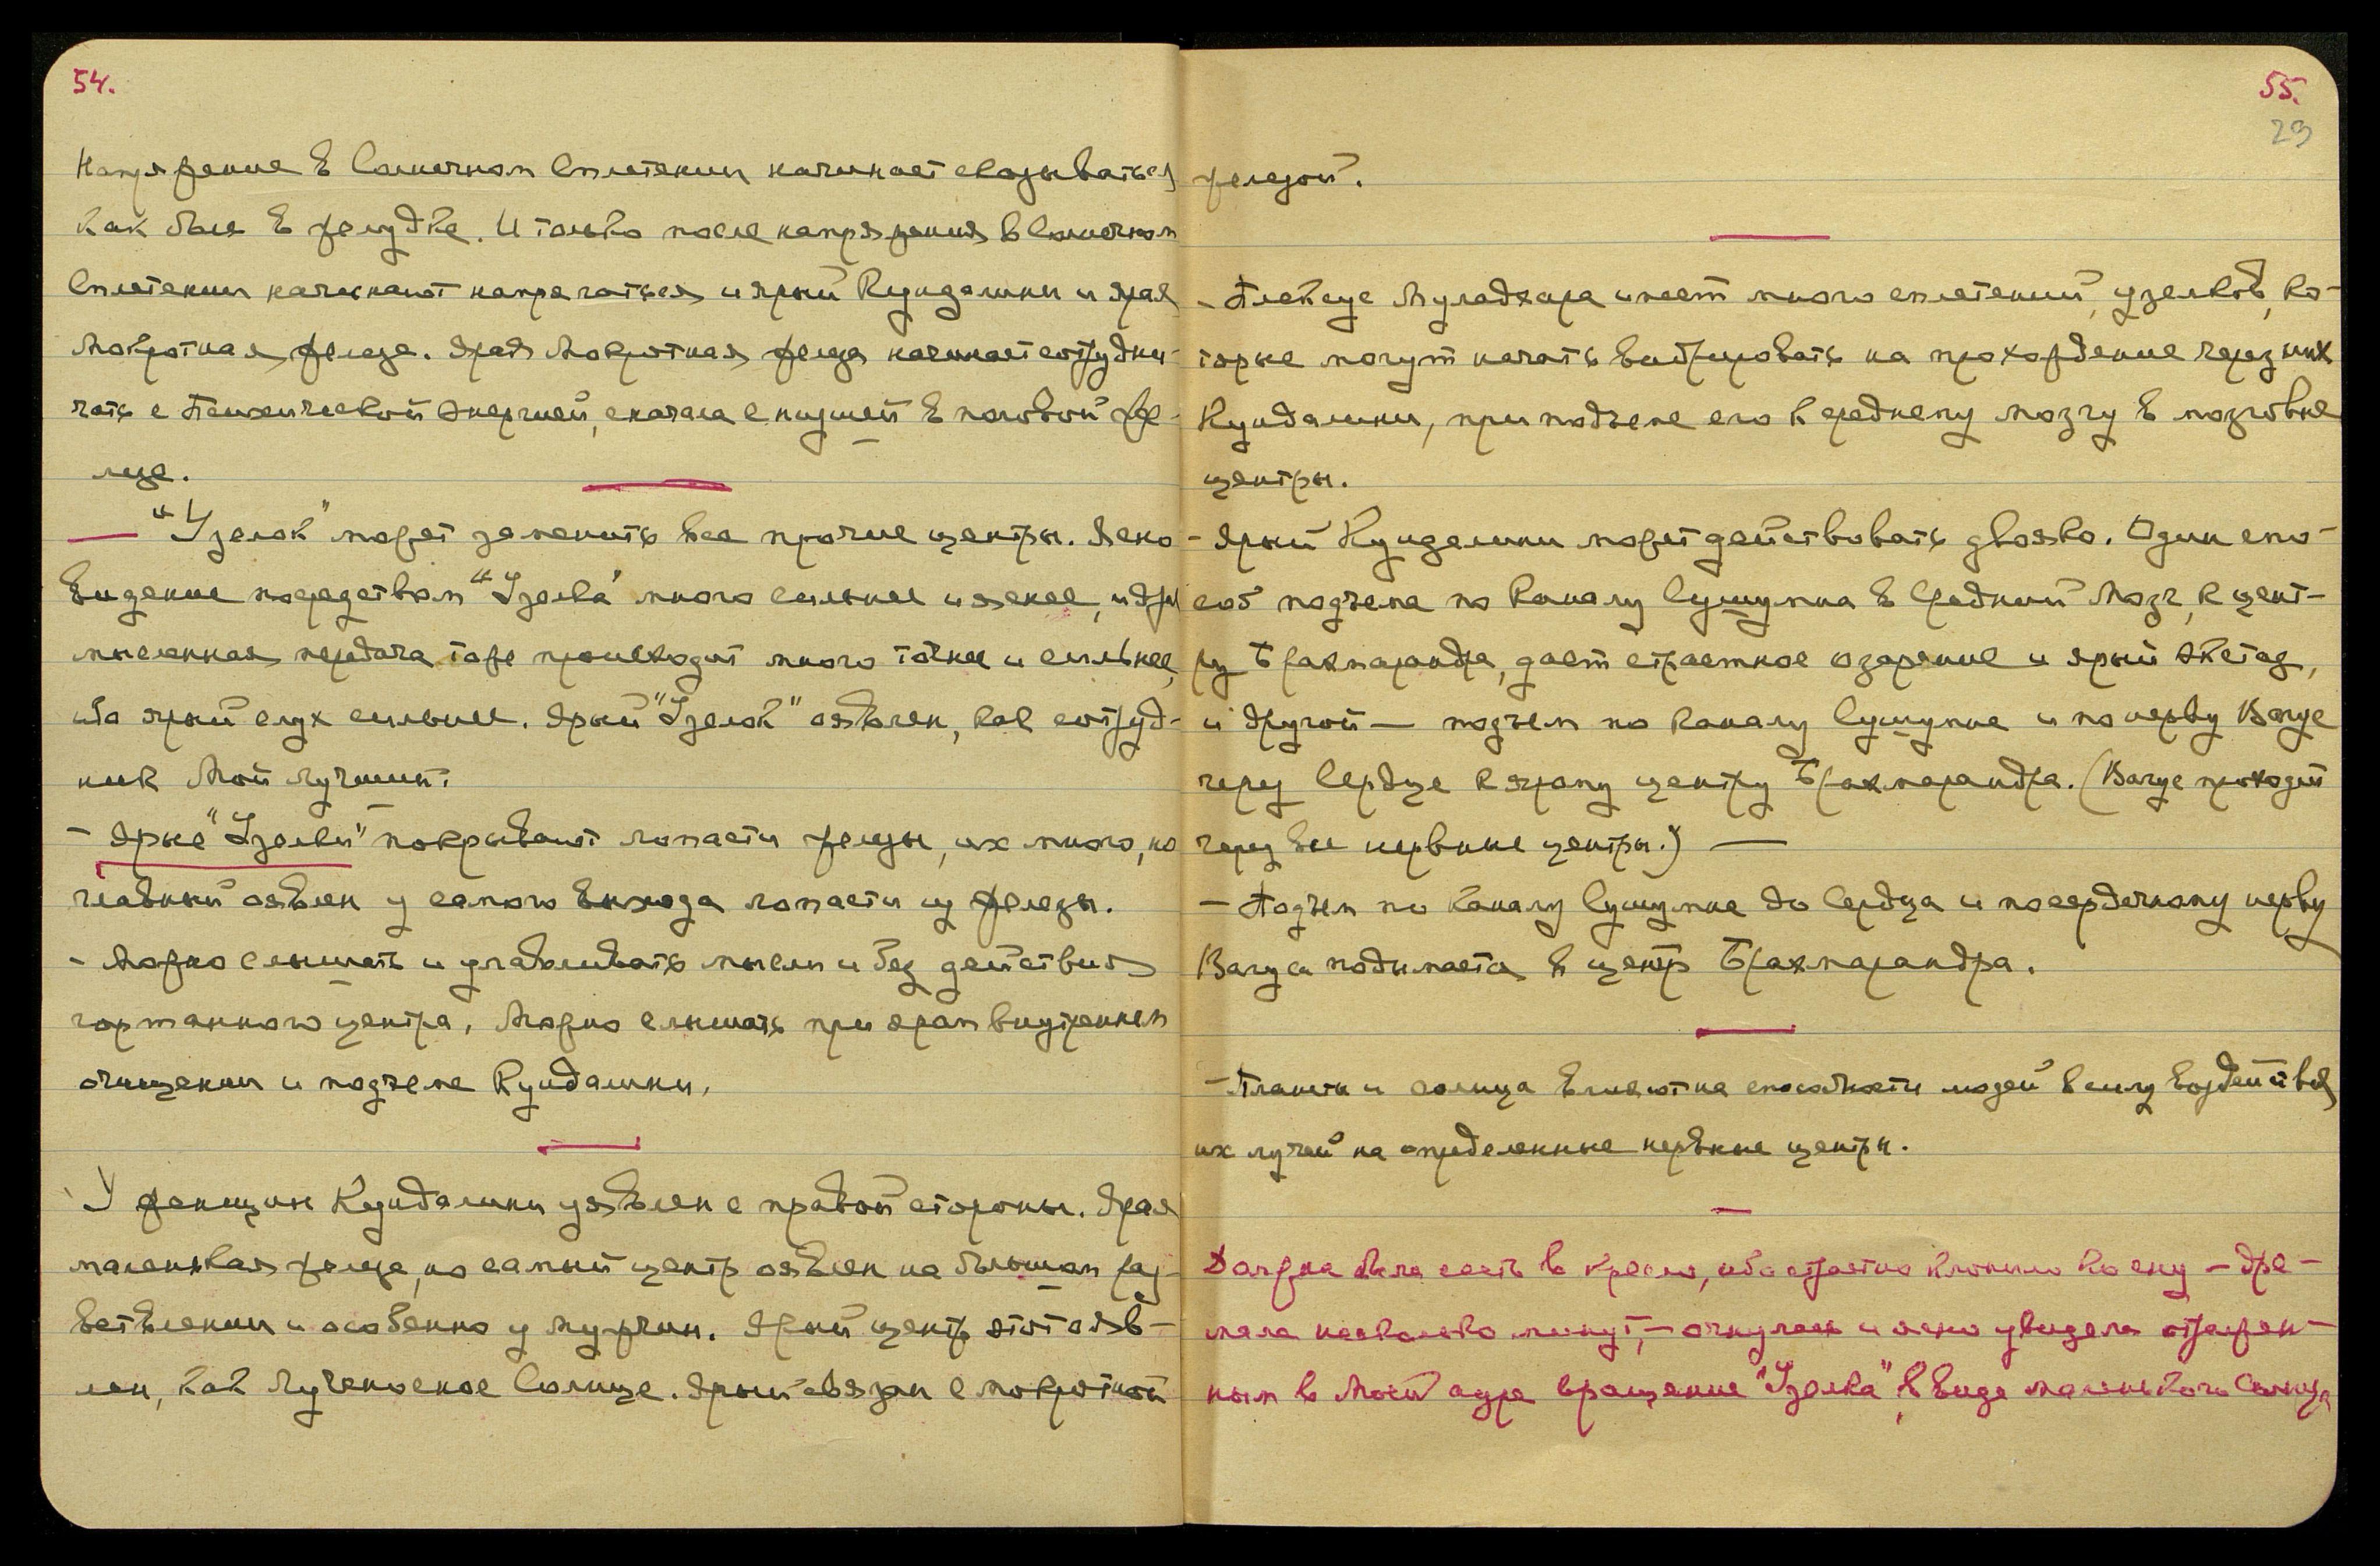 54.
Напряжение в Солнечном Сплетении начинает сказываться
как бы в желудке. И только после напряжения в Солнечном
Сплетении начинают напрягаться и ярый Кундалини и ярая
Мокротная железа. Ярая Мокротная железа начинает сотрудни-
чать с Психической Энергией, сначала с низшей в половой же-
лезе.
— "Узелок" может заменить все прочие центры. Ясно-
видение посредством "Узелка" много сильнее и яснее, и
мысленная передача тоже происходит много точнее и сильнее,
ибо ярый слух сильнее. Ярый "Узелок" оявлен, как сотруд-
ник Мой лучший.
- Ярые "Узелки" покрывают лопасти железы, их много, но
главный оявлен у самого выхода лопасти из железы.
- Можно слышать и улавливать мысли и без действия
гортанного центра. Можно слышать при яром внутреннем
очищении и подъеме Кундалини.
У женщин Кундалини уявлен с правой стороны. Ярая
маленькая железа, но самый центр оявлен на большом раз-
ветвлении и особенно у мужчин. Ярый центр этотояв-
лен, как Лученосное Солнце. Ярый связан с мокротной
55.
29
железой.
- Плексус Муладхара имеет много сплетений, узелков, ко-
торые могут начать вибрировать на прохождение через них
Кундалини, при подъеме его к среднему мозгу в мозговые
центры.
- Ярый Кундалини может действовать двояко. Один спо-
соб подъема по каналу Сушумна в Средний Мозг, к цент-
ру Брахмарандра, дает страстное озарение и ярый экстаз,
и другой — подъем по каналу Сушумне и по нерву Вагус
через Сердце к ярому центру Брахмарандра. (Вагус проходит
через все нервные центры.) —
- Подъем по каналу Сушумне до Сердца и по сердечному нерву
Вагуса подымается в центр Брахмарандра.
- Планеты и солнца влияют на способности людей в силу воздействия
их лучей на определенные нервные центры.
Должна была сесть в кресло, ибо страстно клонило ко сну — дре-
мала несколько минут, — очнулась и ясно увидела отражен-
ным в Моей ауре вращение "Узелка", в виде маленького Солнца